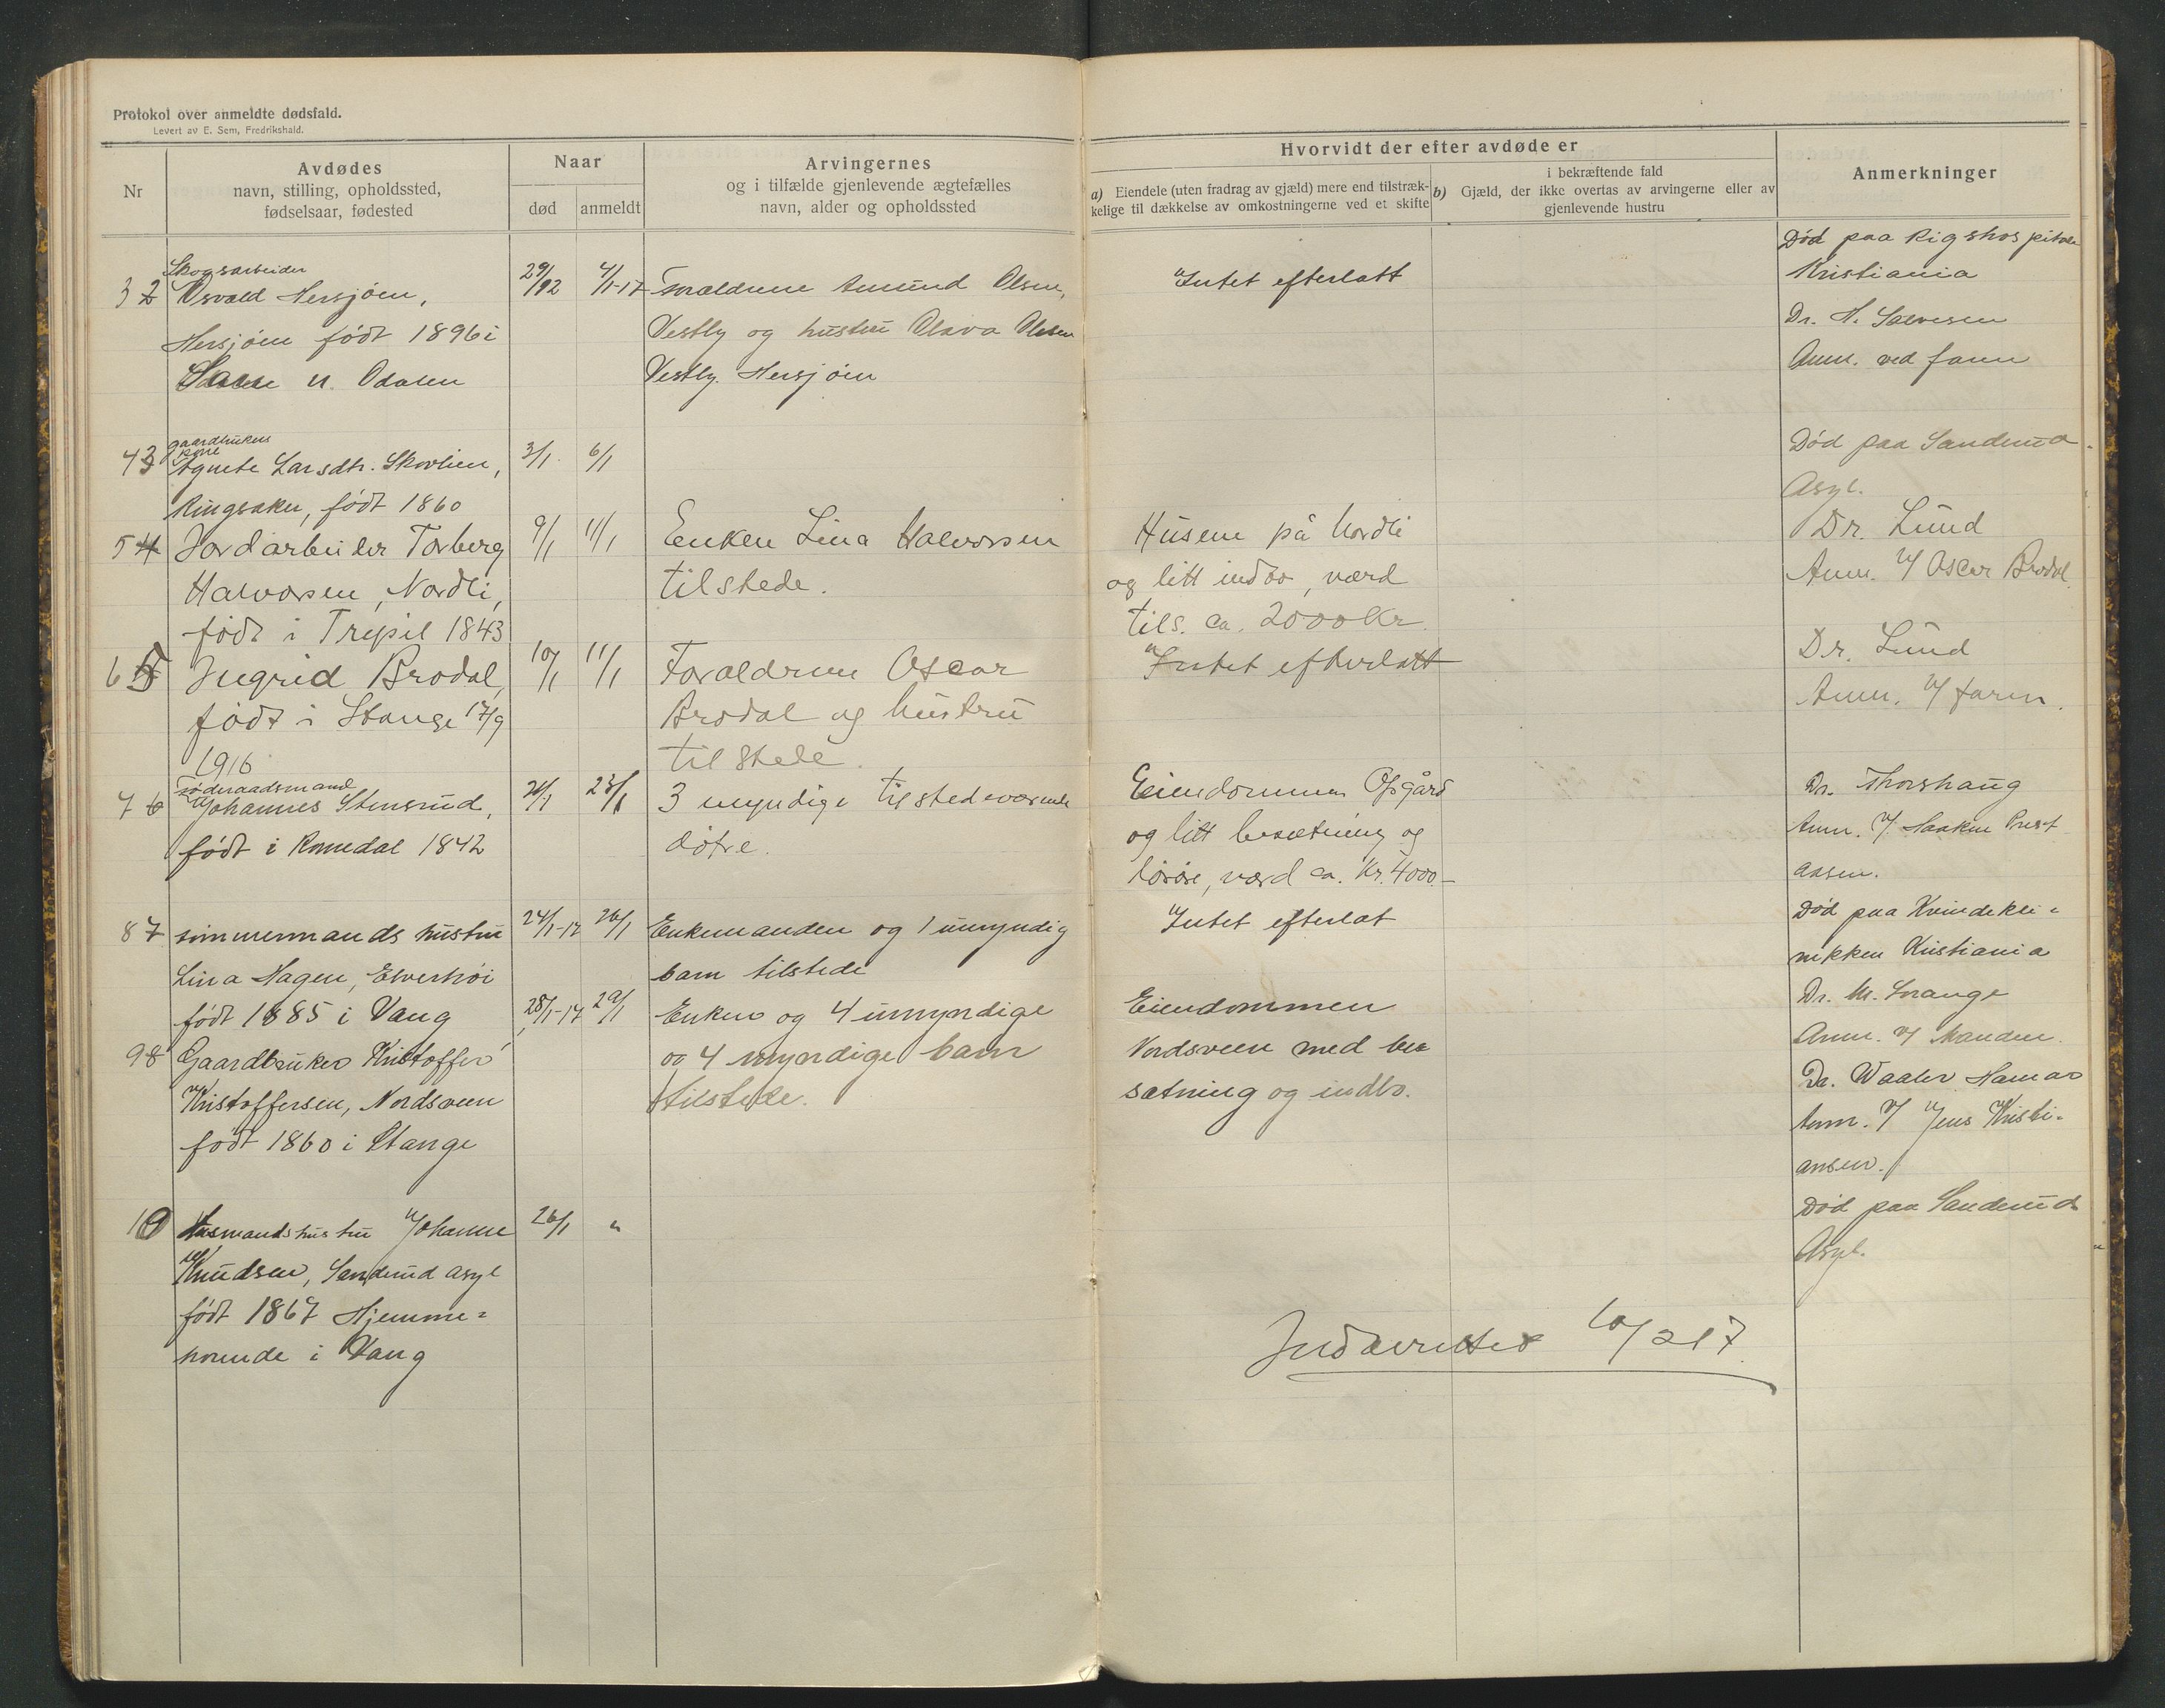 Protokol over anmeldte dødsfald.
Levert av E. Sem, Fredrikshald.
Nr
Avdødes
navn, stilling, opholdssted,
fødselsaar, fødested
Naar
død
anmeldt
Arvingernes
og i tilfælde gjenlevende ægtefælles
navn, alder og opholdssted
Hvorvidt der efter avdøde er
a) Eiendele (uten fradrag av gjæld) mere end tilstræk-
kelige til dækkelse av omkostningerne ved et skifte
i bekræftende fald
b) Gjæld, der ikke overtas av arvingerne eller av
gjenlevende hustru
Anmerkninger
3 2
Skogsarbeider
Osvald Hersjøen,
Hersjøen født 1896 i
n. Odalen
29/12
4/1-17
Forældrene Amund Olsen,
Vestby og hustru Olava Olsen
Vestby. Hersjøen
Intet efterlatt
Død paa Rigshospitale
Kristiania
Dr. H. Salvesen
Anm. ved faren
4 3
gaardbrukers
kone
Agnete Larsdtr. Skovlien,
Ringsaker, født 1860
3/1
6/1
Død paa Sanderud
Asyl.
5 4
Jordarbeider Torberg
Halvorsen, Nordli,
født i Trysil 1843
9/1
11/1
Enken Lina Halvorsen
tilstede.
Husene på Nordli
og litt indbo, værd
tils. ca. 2000 Kr.
Dr. Lund
Anm. v/ Oscar Brodal
6 5
Ingrid Brodal,
født i Stange 17/9
1916
10/1
11/1
Forældrene Oscar
Brodal og hustru
tilstede.
Intet efterlatt
Dr. Lund
Anm. v/ faren.
7 6
Føderaadsmand
Johannes Stensrud,
født i Romedal 1842
20/1
23/1
3 myndige tilstedeværende
døtre.
Eiendommen Opgård
og litt besætning og
løsøre, værd ca. Kr. 4000.-
Dr. Thorshaug
Anm. v/ Haaken Prest
aasen.
8 7
tømmermands hustru
Lina Hagen, Elverhøi
født 1885 i Vang
24/1-17
26/1
Enkemanden og 1 umyndig
barn tilstede
Intet efterlat
Død paa Kvindekli-
nikken Kristiania
Dr. M.
Anm. v/ Manden.
9 8
Gaardbruker Kristoffer
Kristoffersen, Nordsveen
født 1860 i Stange
28/1-17
29/1
Enken og 4 umyndige
og 4 myndige barn
tilstede.
Eiendommen
Nordsveen med be
sætning og indbo.
Dr. Waaler Hamar
Anm. v/ Jens Kristi-
ansen.
10
Husmandshustru Johanne
Knudsen, Sanderud asyl
født 1867 Hjemme-
hørende i Vang
26/1
"
Død paa Sanderud
Asyl.
Indberettet 10/2 17